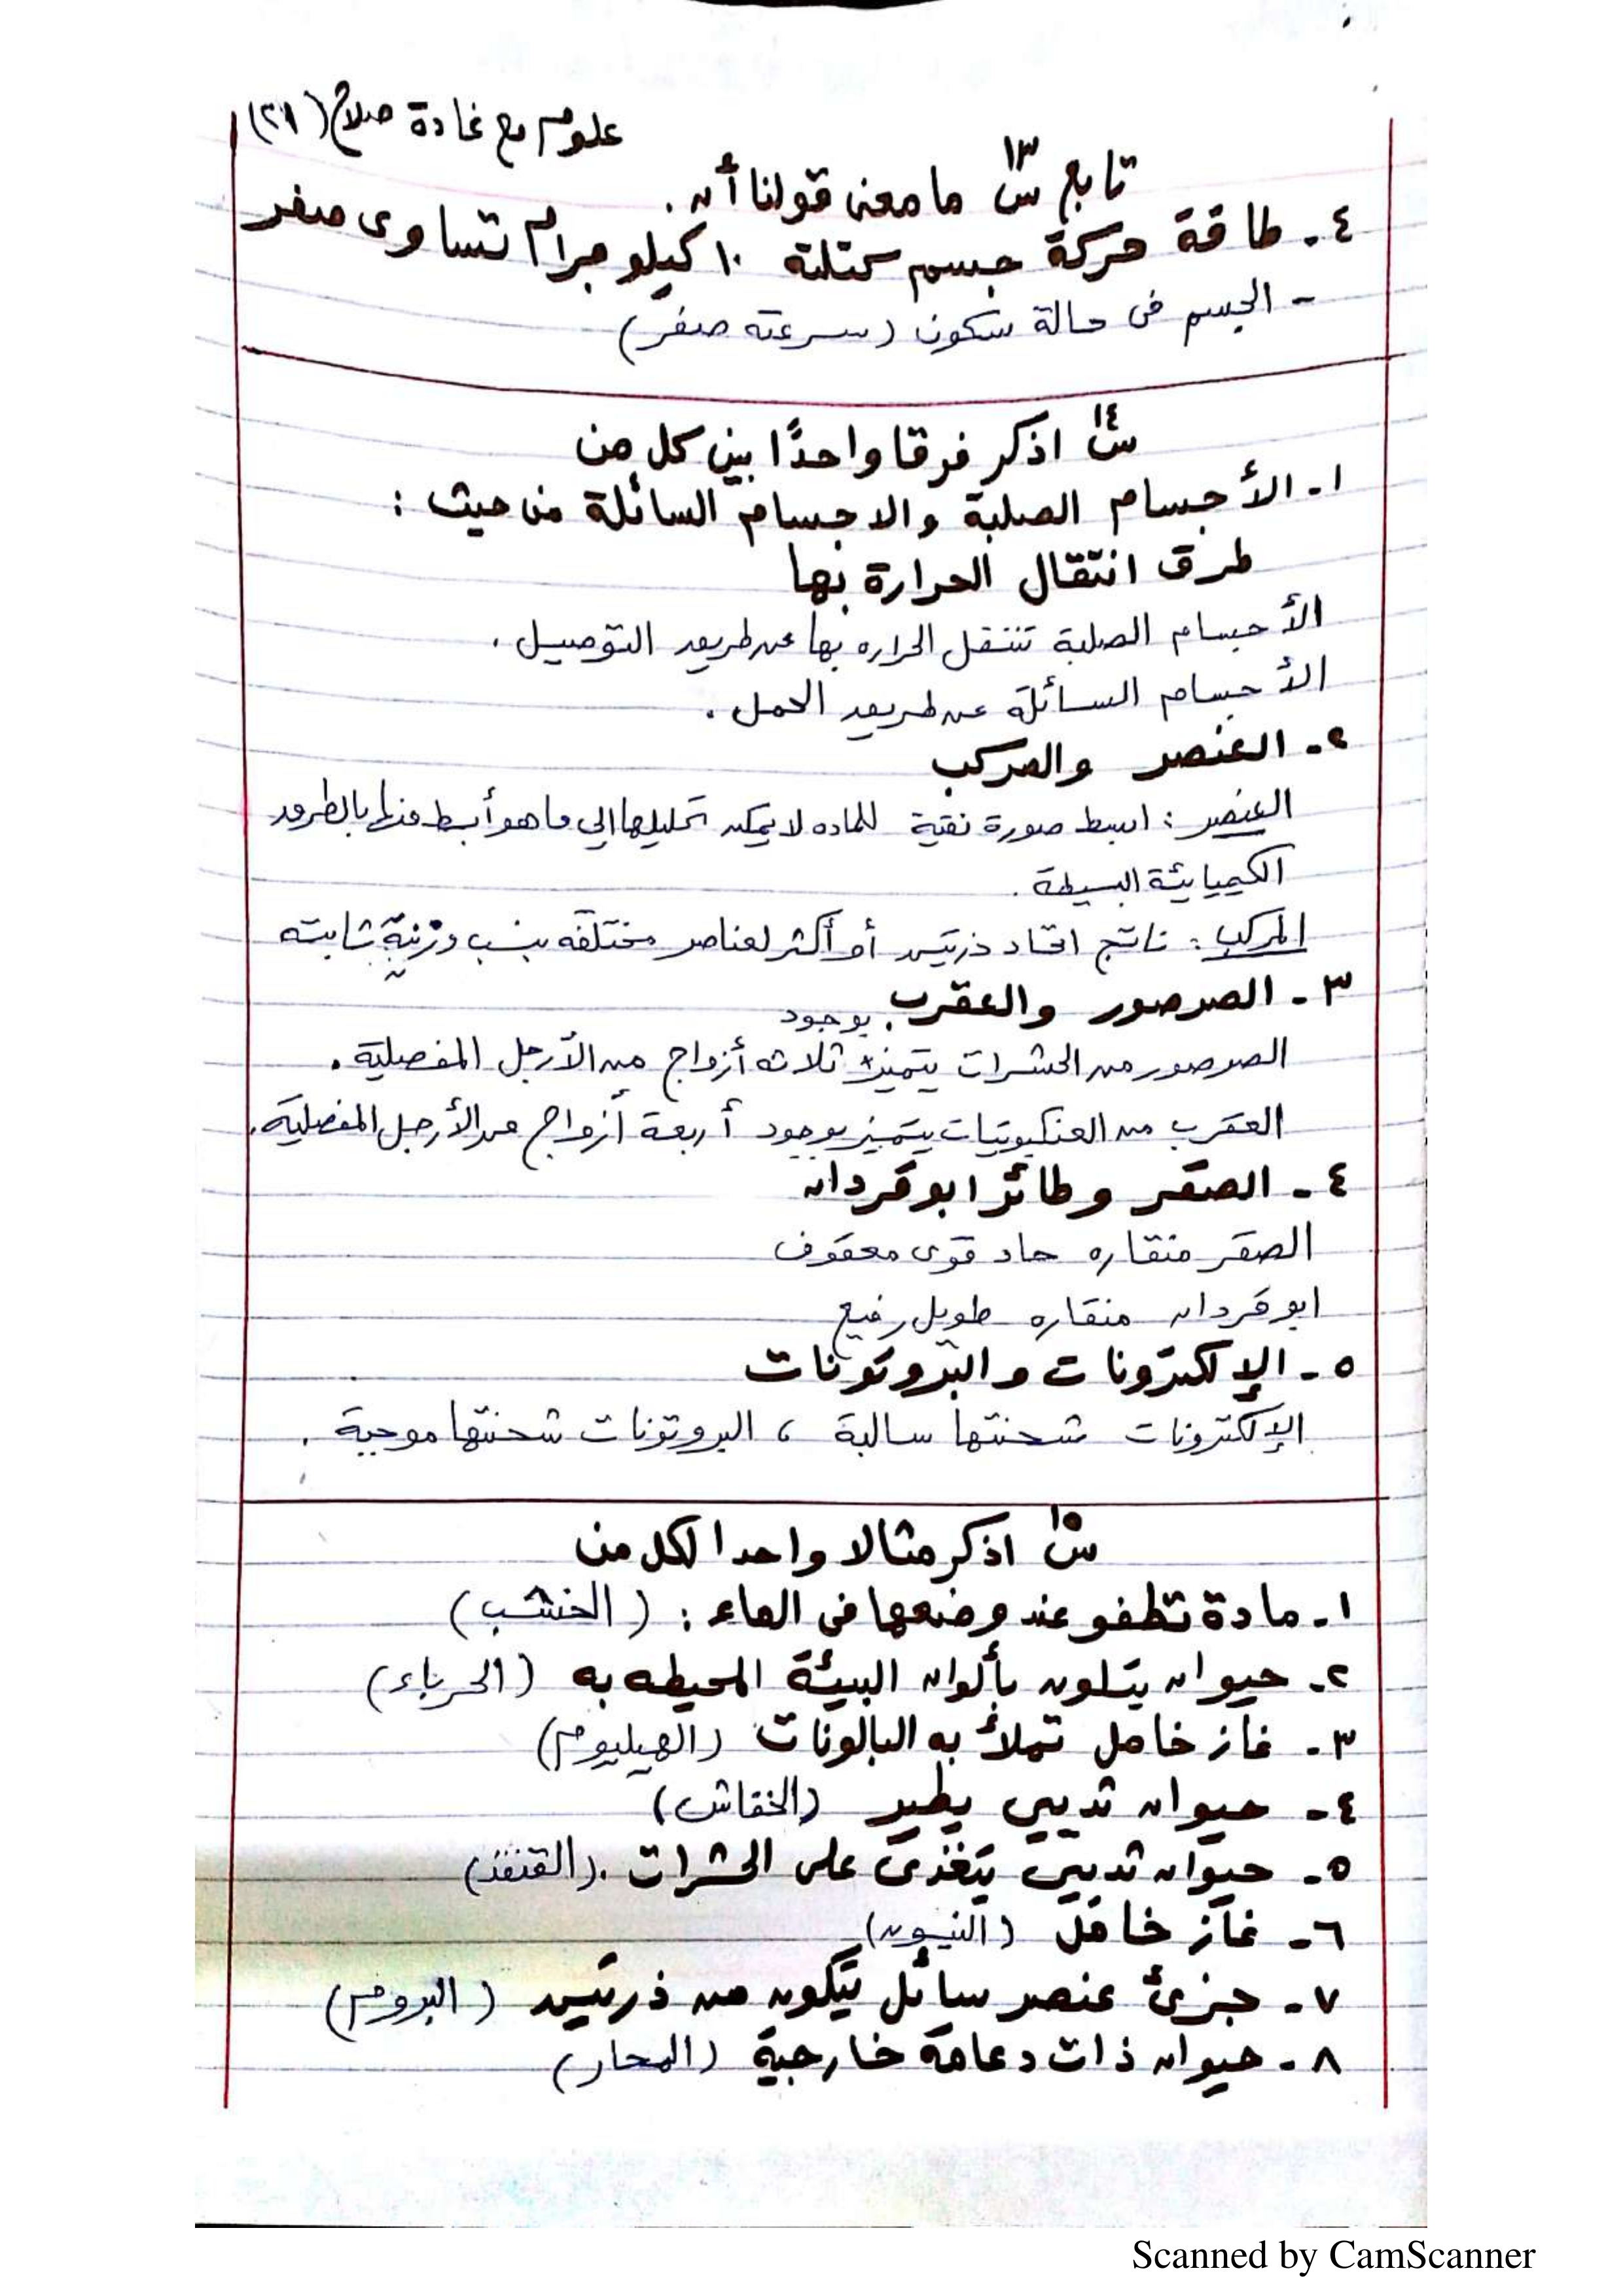 علوم مع غادة صلاح (٢١)
تابع س١٣ ما معنى قولنا أن .
٤- طاقة حركة جسم كتلته ١٠ كيلو جرام تساوى صفر
- الجسم فى حالة سكون (سرعته صفر)
س١٤ اذكر فرقا واحدًا بين كل من
١- الأجسام الصلبة والاجسام السائلة من حيث :
طرق انتقال الحرارة بها
الأجسام الصلبة تنتقل الحراره بها عن طريق التوصيل .
الأجسام السائلة عن طريق الحمل .
٢- العنصر والمركب
العنصر : ابسط صورة نقية للماده لا يمكن تحليلها إلي ما هو أبسط منها بالطرق
الكيميائية البسيطة .
المركب : ناتج اتحاد ذرتين أو أكثر لعناصر مختلفه بنسب وزنية ثابته
٣- الصرصور والعقرب .
الصرصور من الحشرات يتميز بوجود ثلاثه أزواج من الأرجل المفصلية .
العقرب من العنكبوتيات يتميز بوجود أربعة أزواج من الأرجل المفصلية .
٤- الصقر وطائر ابو قردان
الصقر منقاره حاد قوى معقوف
ابو قردان منقاره طويل رفيع
٥- الإلكترونات والبروتونات
الإلكترونات شحنتها سالبة ، البروتونات شحنتها موجبة .
س١٥ اذكر مثالا واحدا لكل من
١- مادة تطفو عند وضعها فى الماء : (الخشب)
٢- حيوان يتلون بألوان البيئة المحيطه به (الحرباء)
٣- غاز خامل تملأ به البالونات (الهيليوم)
٤- حيوان ثديي يطير (الخفاش)
٥- حيوان ثديي يتغذى على الحشرات . (القنفذ)
٦- غاز خامل (النيون)
٧- جزئ عنصر سائل يتكون من ذرتين (البروم)
٨- حيوان ذات دعامة خارجية (المحار)
Scanned by CamScanner